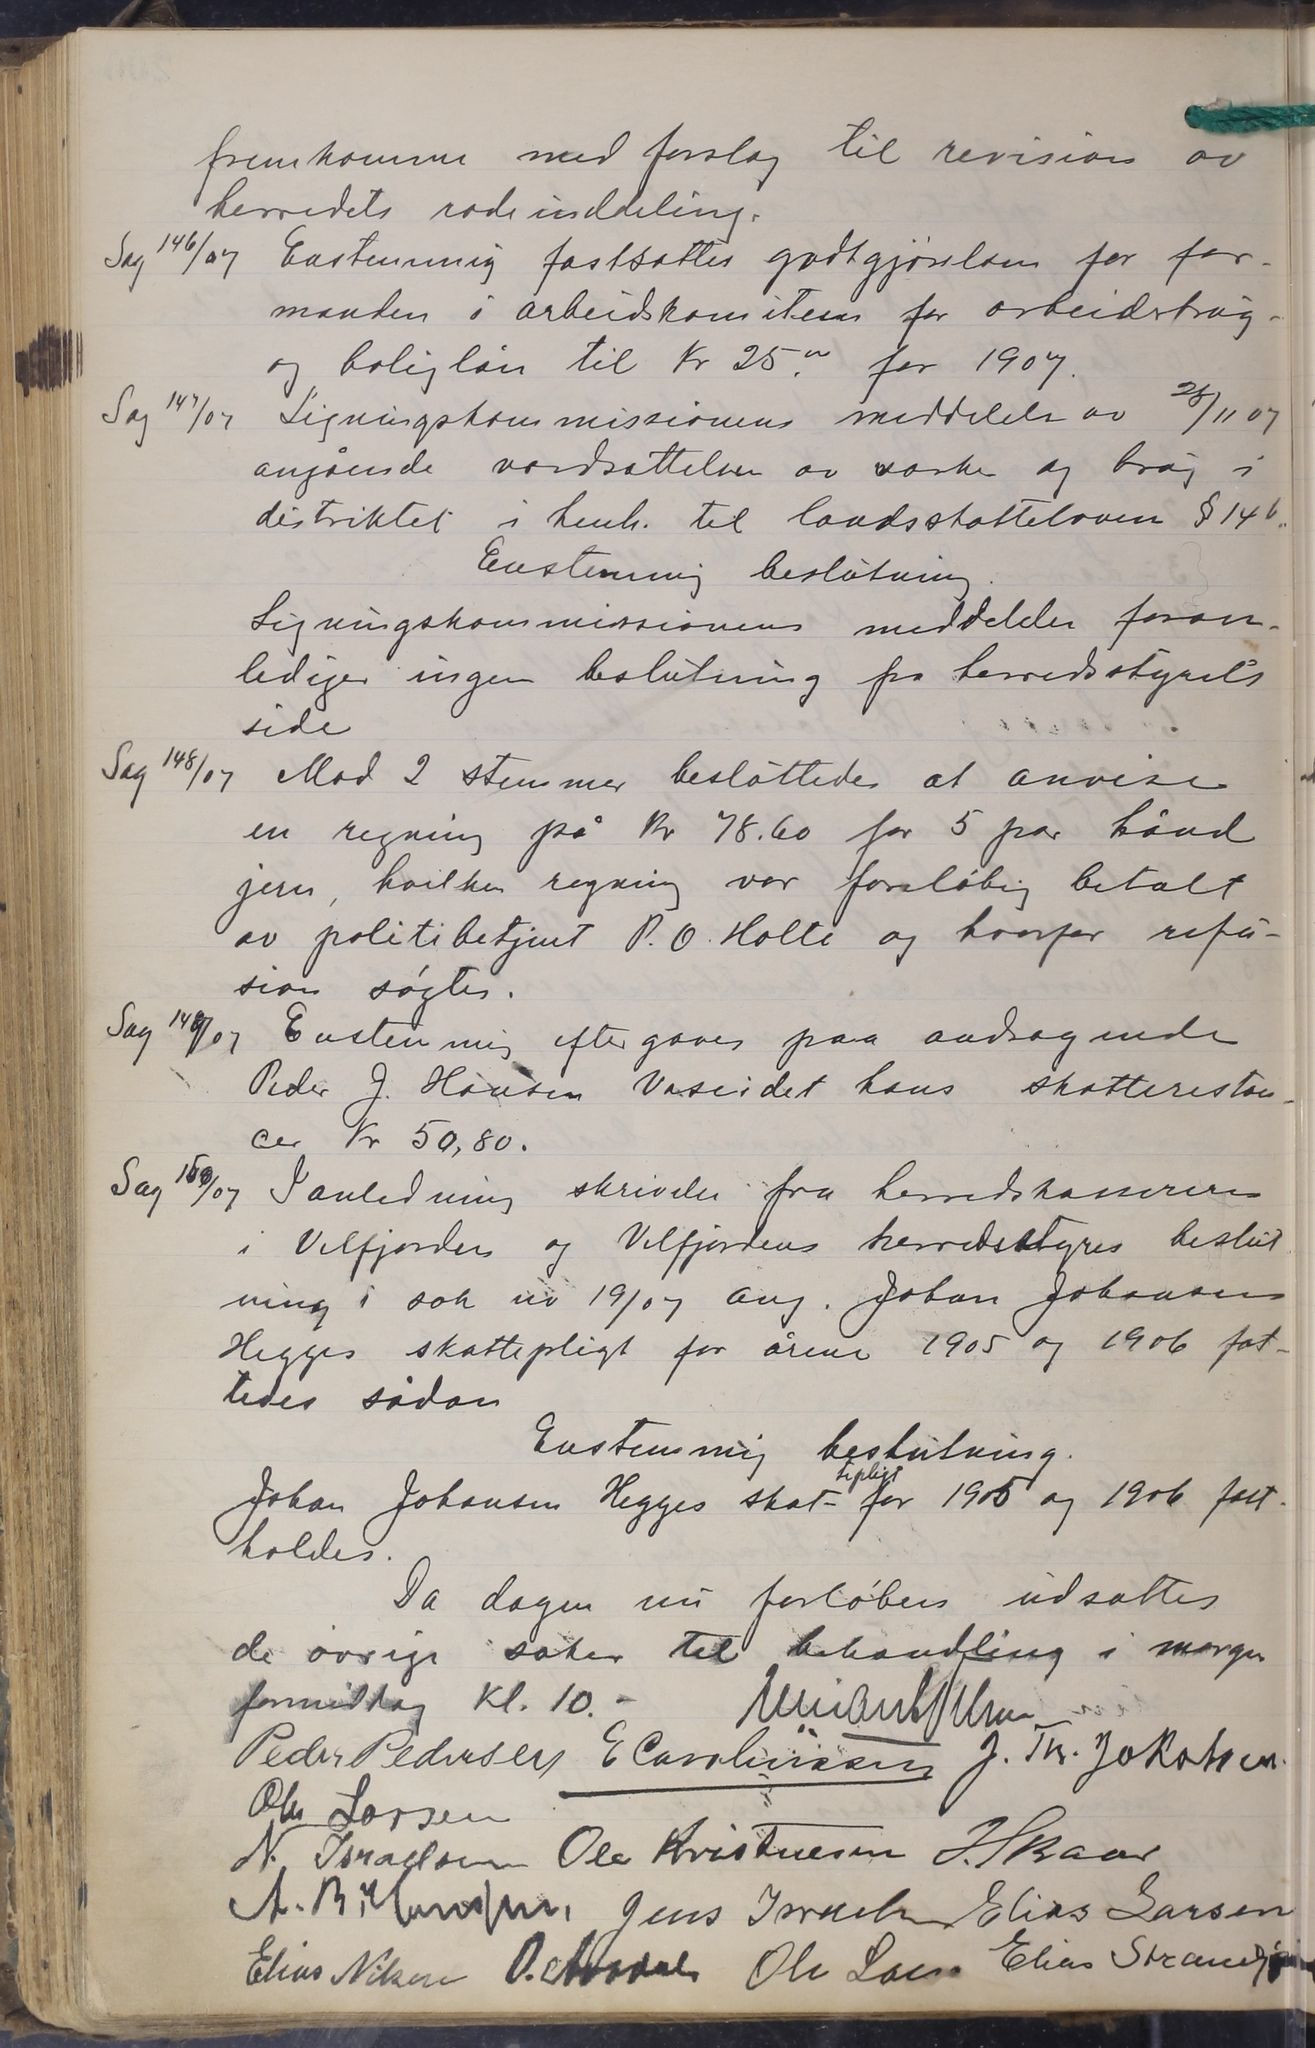 fremkomme med forslag til revision av
herredets rodeinddeling.
Sag 146/07 Enstemmig fastsattes godtgjörelsen for for-
manden i arbeidskomiteen for arbeidsbrug-
og boliglån til Kr 25.00 for 1907.
Sag 147/07 Ligningskommissionens meddelelse av 28/11 07
angående værdsættelsen av verker og brug i
distriktet i henh. til landsskatteloven § 14 b.
Enstemmig beslutning.
Ligningskommissionens meddelelse foran-
lediger ingen beslutning fra herredsstyrets
side
Sag 148/07 Mod 2 stemmer besluttedes at anvise
en regning på Kr 78.60 for 5 par hånd
jern, hvilken regning var foreløbig betalt
av politibetjent P. O. Holte og hvorfor refu-
sion søgtes.
Sag 149/07 Enstemmig eftergaves paa andragende
Peder J. Hansen Vaseidet hans skatterestan-
cer Kr 50,80.
Sag 150/07 I anledning skrivelse fra herredskassereren
i Velfjorden og Velfjordens herredsstyres beslut
ning i sak nr 19/07 ang. Johan Johansen
Hegges skattepligt for årene 1905 og 1906 fat-
tedes sådan
Enstemmig beslutning.
Johan Johansen Hegges skat-tepligt for 1905 og 1906 fast-
holdes.
Da dagen nu forløben udsattes
de øvrige saker til behandling i morgen
formiddag kl. 10.-
Peder Pedersen E Caroliussen J. Thr. Jakobsen.
Ole Larsen
N. Israelsen Ole Kristensen J. Skaar
A. B. Jens Israelsen Elias Larsen
Elias Nilsen Ole Elias Strand